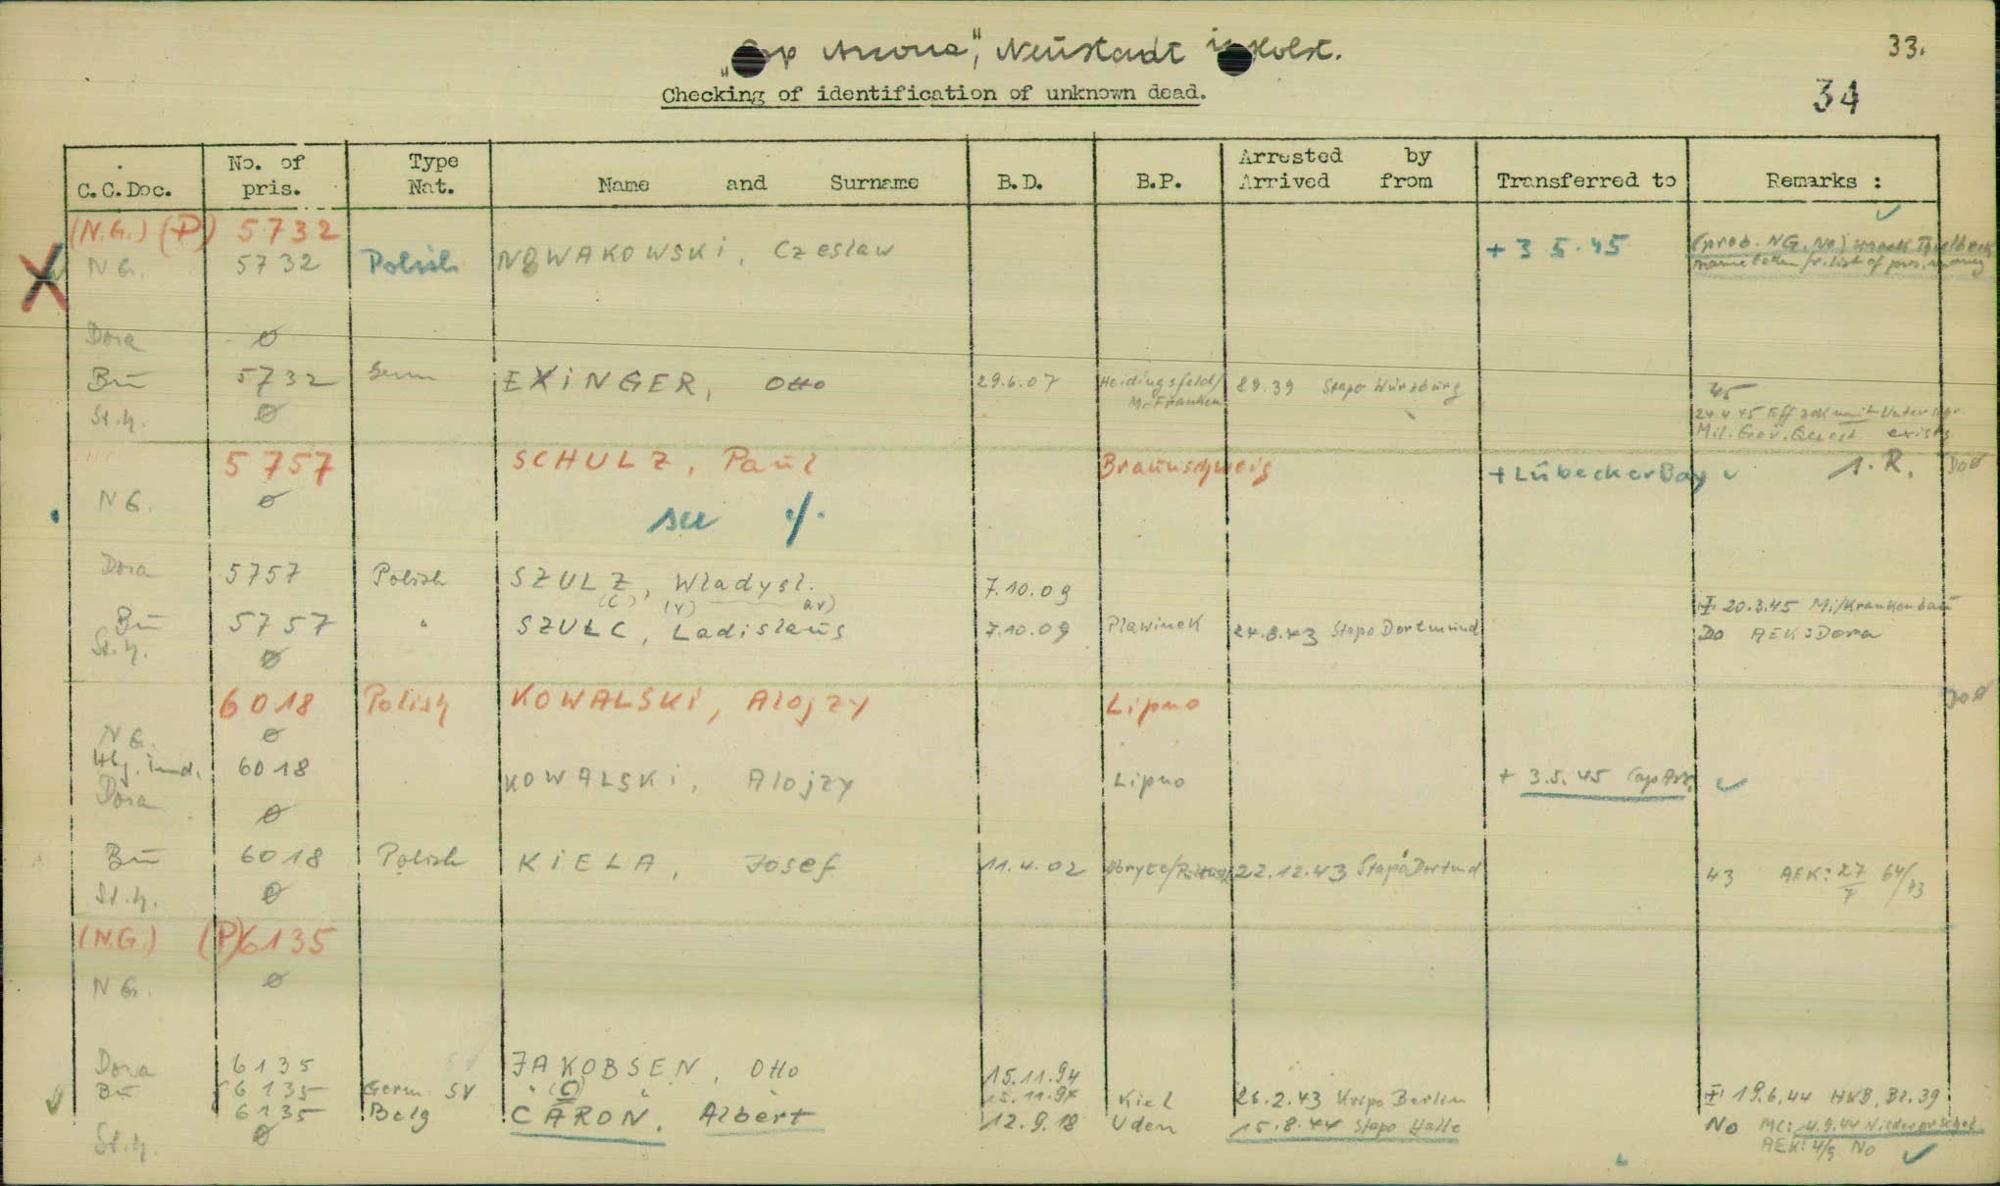 "Cap Arcona", Neustadt in Holst.
33.
Checking of identification of unknown dead.
34
C.C.Doc. No. of pris. Type Nat. Name and Surname B.D. B.P. Arrested by Arrived from Transferred to Remarks :
(N.G.) (P) 5732
NG. 5732 Polish NOWAKOWSKI, Czeslaw + 3 5.45 (prob. NG. No)
name taken fr. list of pris.
Dora ø
Bu 5732 Germ EXINGER, Otto 29.6.07 Heidingsfeld/ M.Franken 8 9.39 Stapo Würzburg 45
St.h. ø 24.4.45 Eff
Mil. Gov. Quest exists
5757 SCHULZ, Paul Braunschweig + Lübecker Bay 1. R.
NG. ø
see ./.
Dora 5757 Polish SZULZ, Wladysl. 7.10.09
(C) (V)
20.3.45 Mi/Krankenbau
Bu 5757 " SZULC, Ladislaus 7.10.09 Plawinek 24.8.43 Stapo Dortmund Do AEK: Dora
St.h. ø
6018 Polish KOWALSKI, Alojzy Lipno
NG. ø
Hbg. ind. 6018 KOWALSKI, Alojzy Lipno + 3.5.45 Cap Arc.
Dora ø
Bu 6018 Polish KIELA, Josef 11.4.02 22.12.43 Stapo Dortmund 43 AEK: 27/7 64/43
St.h. ø
(N.G.) (P) 6135
NG. ø
Dora 6135 JAKOBSEN, Otto 15.11.94
Bu 6135 Germ SV " (C) " 15.11.94 Kiel 26.2.43 Kripo Berlin 19.6.44 HKB, Bl. 39
6135 Belg CARON, Albert 12.9.18 Uden 15.8.44 Stapo Halle No MC: 4.9.44
St.h. ø AEK: 4/9 No